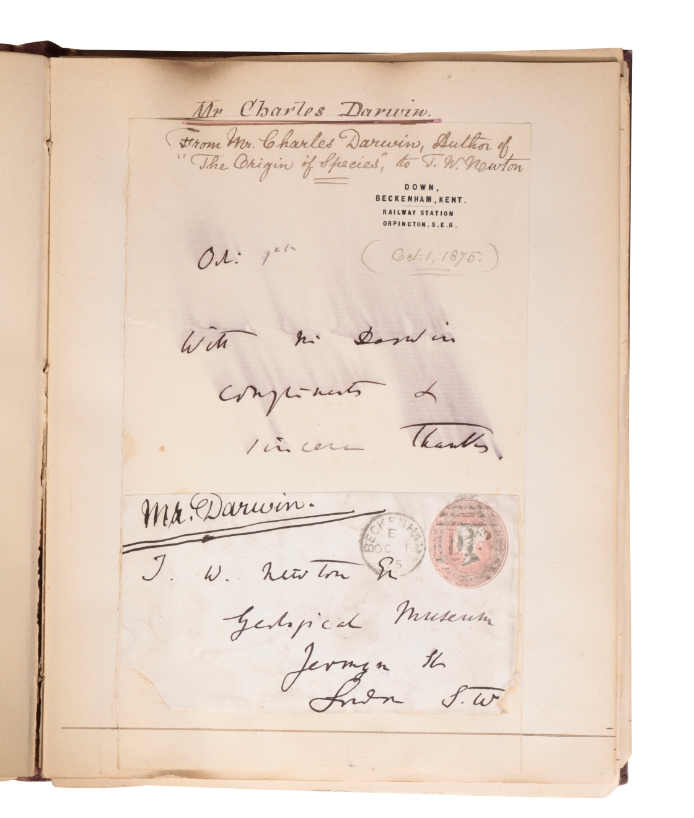 Mr Charles Darwin.
From Mr. Charles Darwin, Author of
"The Origin of Species", to T. W. Newton
DOWN,
BECKENHAM, KENT.
RAILWAY STATION
ORPINGTON, S.E.R.
Oct:
(Oct. 1, 1875.)
With Mr Darwin
compliments &
sincere Thanks.
Mr. Darwin.
BECKENHAM
E
OC 1
5
T. W. Newton Esq
Geological Museum
Jermyn St
London S.W